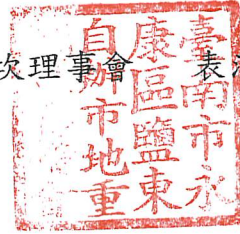 次理事會 表決
臺南市永
康區鹽東
自辦市地重